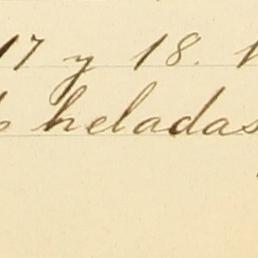 17 y 18.
heladas